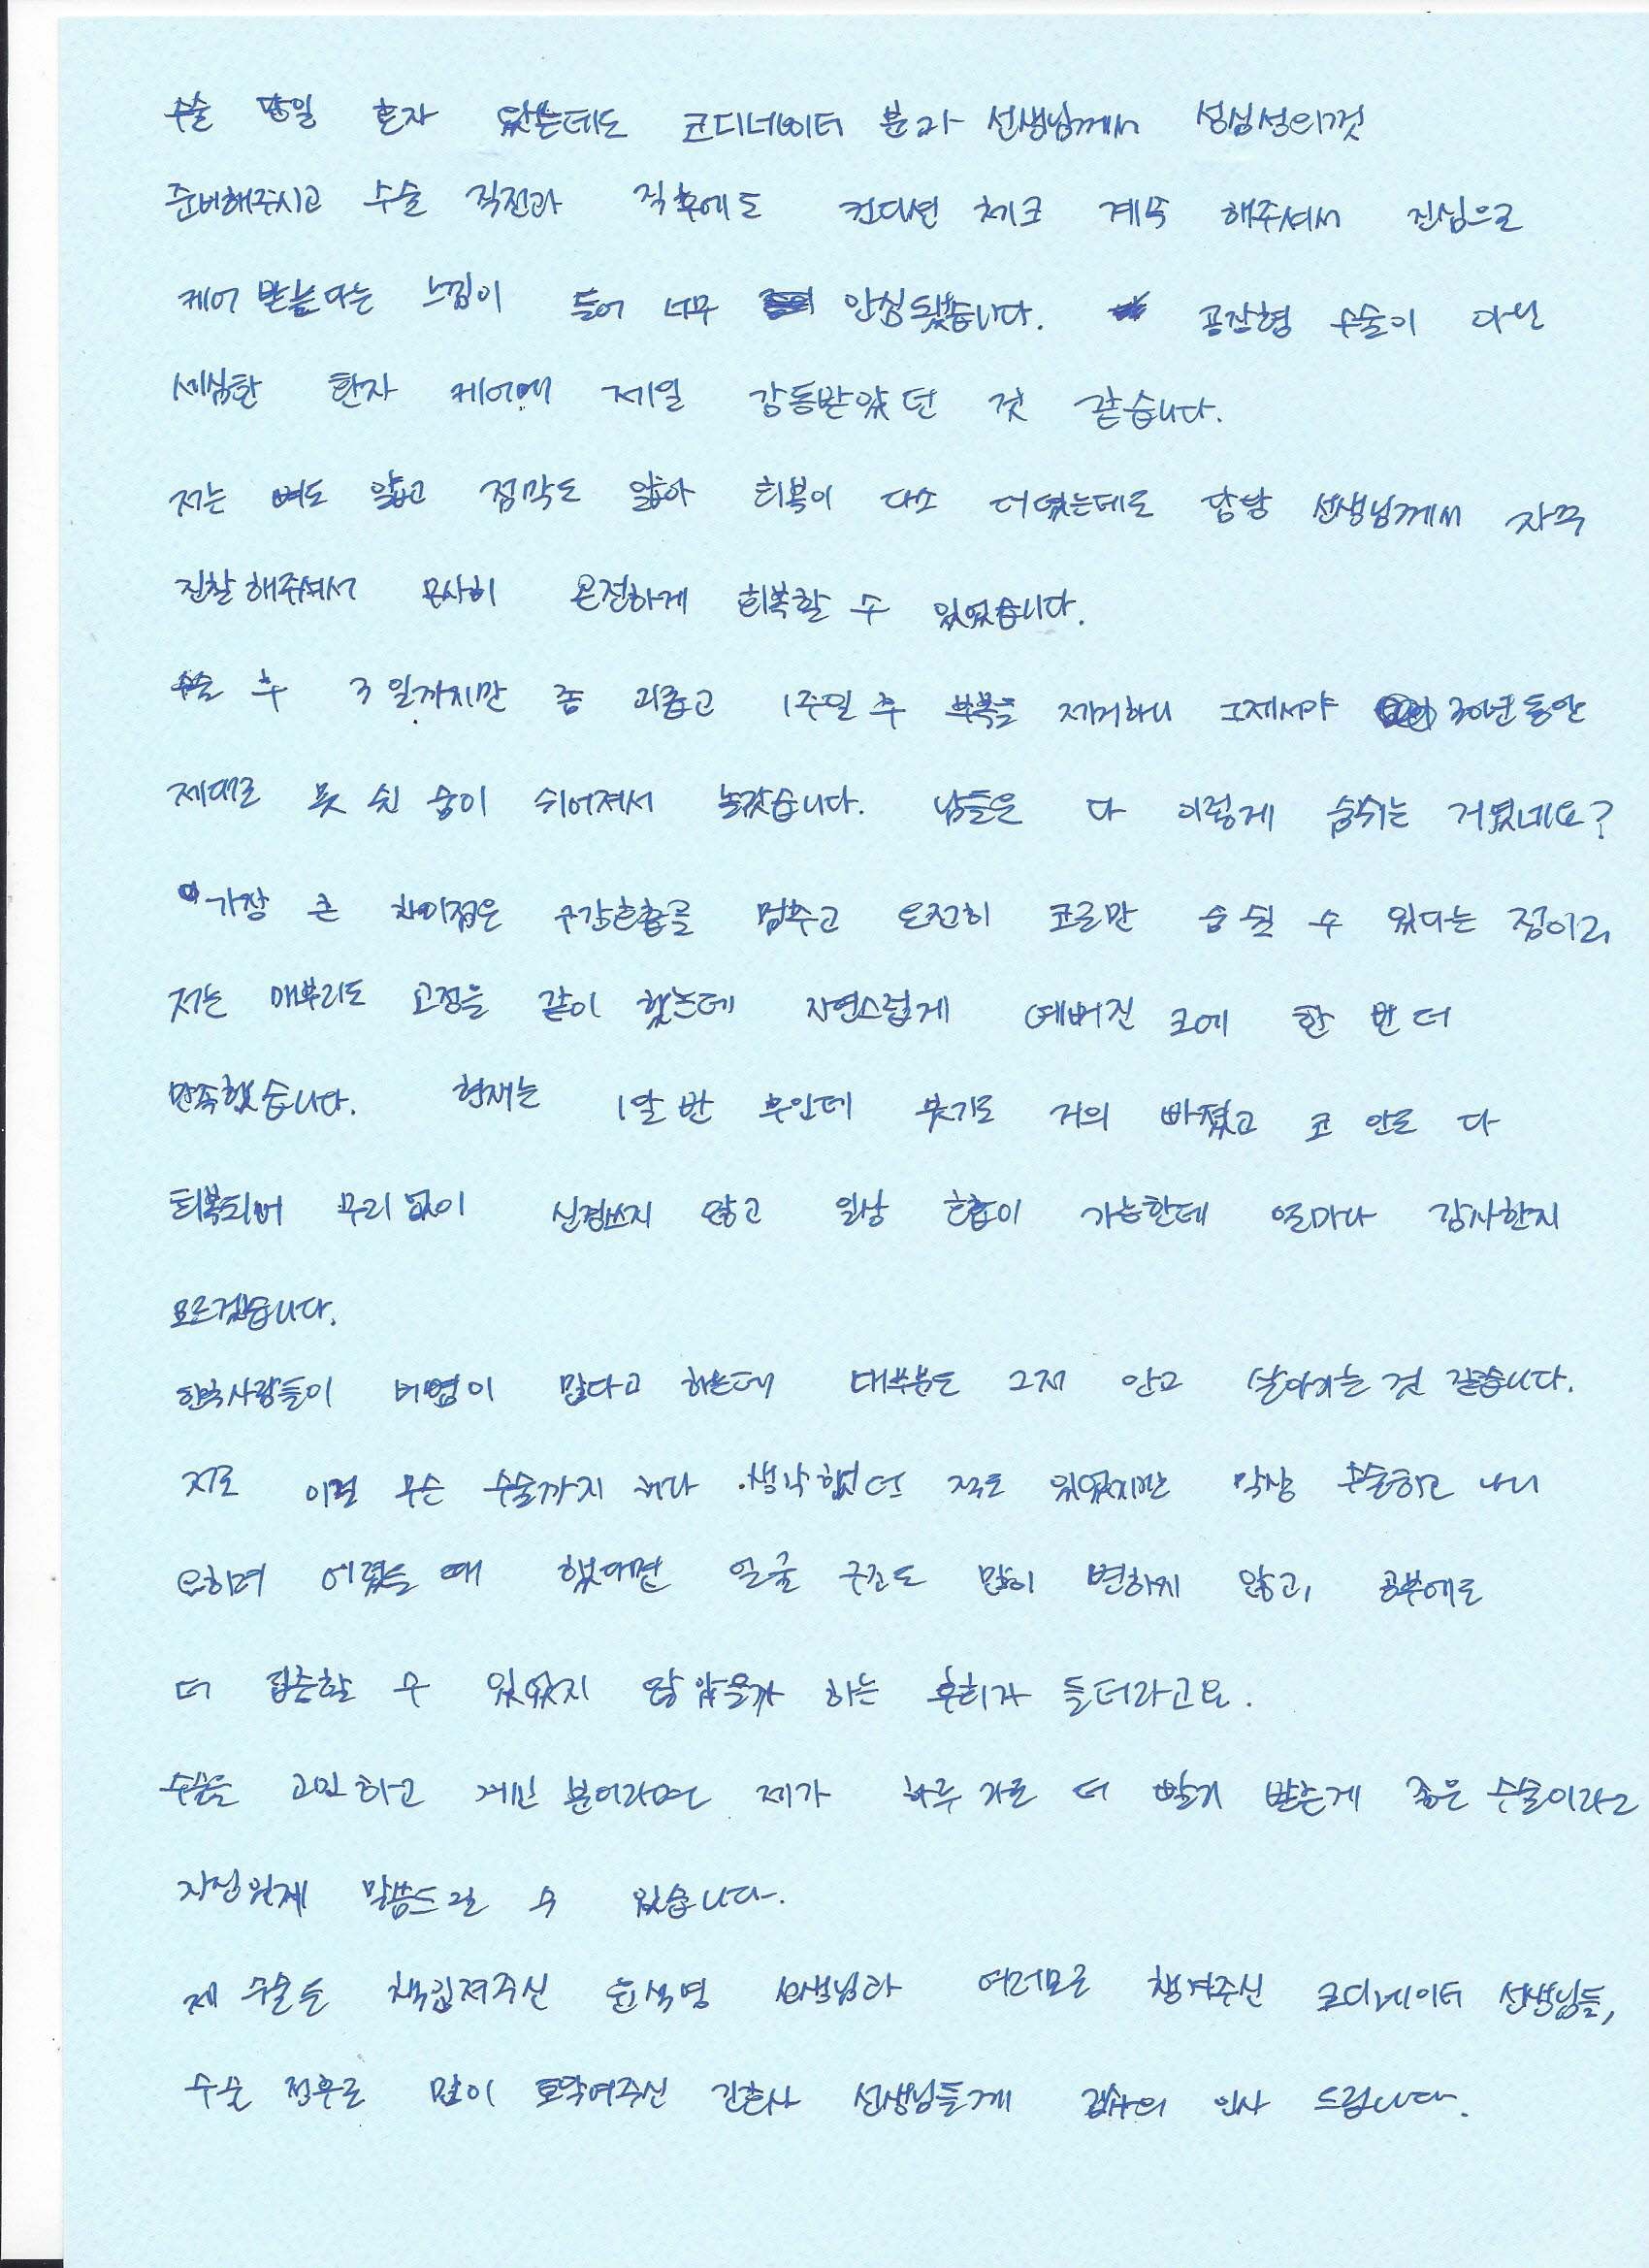 수술 당일 혼자 왔는데도 코디네이터 분과 선생님께서 성심성의껏
준비해주시고 수술 직전과 직후에도 컨디션 체크 계속 해주셔서 진심으로
케어 받는다는 느낌이 들어 너무 안심됐습니다. 공장형 수술이 아닌
세심한 환자 케어에 제일 감동받았던 것 같습니다.
저는 뼈도 얇고 점막도 얇아 회복이 다소 더뎠는데도 담당 선생님께서 자주
진찰해주셔서 무사히 온전하게 회복할 수 있었습니다.
수술 후 3일까지만 좀 괴롭고 1주일 후 부목을 제거하니 그제서야 30년동안
제대로 못 쉰 숨이 쉬어져서 놀랐습니다. 남들은 다 이렇게 숨쉬는 거였네요?
가장 큰 차이점은 구강호흡을 멈추고 온전히 코로만 숨 쉴 수 있다는 점이고,
저는 매부리도 교정을 같이 했는데 자연스럽게 예뻐진 코에 한 번 더
만족했습니다. 현재는 1달 반 후인데 붓기도 거의 빠졌고 코 안도 다
회복되어 무리 없이 신경쓰지 않고 일상 호흡이 가능한데 얼마나 감사한지
모르겠습니다.
한국사람들이 비염이 많다고 하는데 대부분도 그저 안고 살아가는 것 같습니다.
저도 이걸 무슨 수술까지 하나 생각했던 적도 있었지만 막상 수술하고 나니
오히려 어렸을 때 했다면 얼굴 구조도 많이 변하게 않고, 공부에도
더 집중할 수 있었지 않았을까 하는 후회가 들더라고요.
수술을 고민하고 계신 분이라면 제가 하루 라도 더 빨리 받는게 좋은 수술이라고
자신있게 말씀드릴 수 있습니다.
제 수술을 책임져주신 윤석영 선생님과 여러모로 챙겨주신 코디네이터 선생님들,
수술 전후로 많이 토닥여주신 간호사 선생님들께 감사의 인사 드립니다.